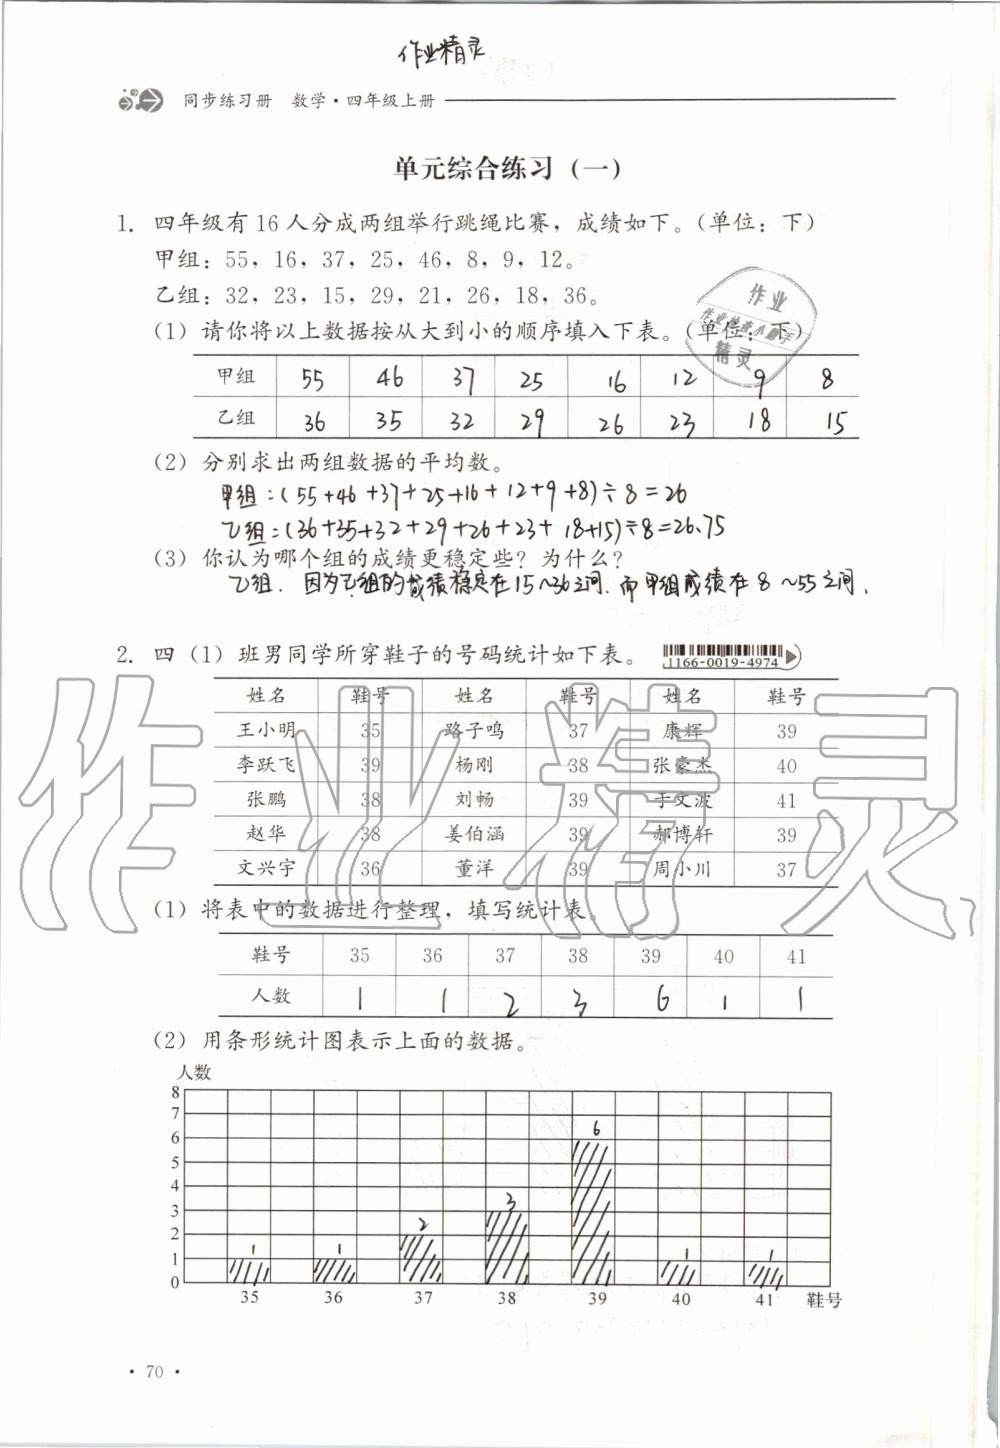 作业精灵
同步练习册 数学·四年级上册
单元综合练习（一）
1. 四年级有16人分成两组举行跳绳比赛，成绩如下。（单位：下）
甲组：55，16，37，25，46，8，9，12。
乙组：32，23，15，29，21，26，18，36。
（1）请你将以上数据按从大到小的顺序填入下表。（单位：下）
作业
精灵
甲组 55 46 37 25 16 12 9 8
乙组 36 35 32 29 26 23 18 15
（2）分别求出两组数据的平均数。
甲组：(55+46+37+25+16+12+9+8)÷8=26
乙组：(36+35+32+29+26+23+18+15)÷8=26.75
（3）你认为哪个组的成绩更稳定些？为什么？
乙组．因为乙组的成绩稳定在15~36之间．而甲组成绩在8~55之间．
2. 四（1）班男同学所穿鞋子的号码统计如下表。 1166-0019-4974
姓名 鞋号 姓名 鞋号 姓名 鞋号
王小明 35 路子鸣 37 康辉 39
李跃飞 39 杨刚 38 张豪杰 40
张鹏 38 刘畅 39 于文波 41
赵华 38 姜伯涵 39 郝博轩 39
文兴宇 36 董洋 39 周小川 37
作业精灵
（1）将表中的数据进行整理，填写统计表。
鞋号 35 36 37 38 39 40 41
人数 1 1 2 3 6 1 1
（2）用条形统计图表示上面的数据。
人数
8
7
6 6
5
4
3 3
2 2
1 1 1 1 1
0
35 36 37 38 39 40 41 鞋号
· 70 ·